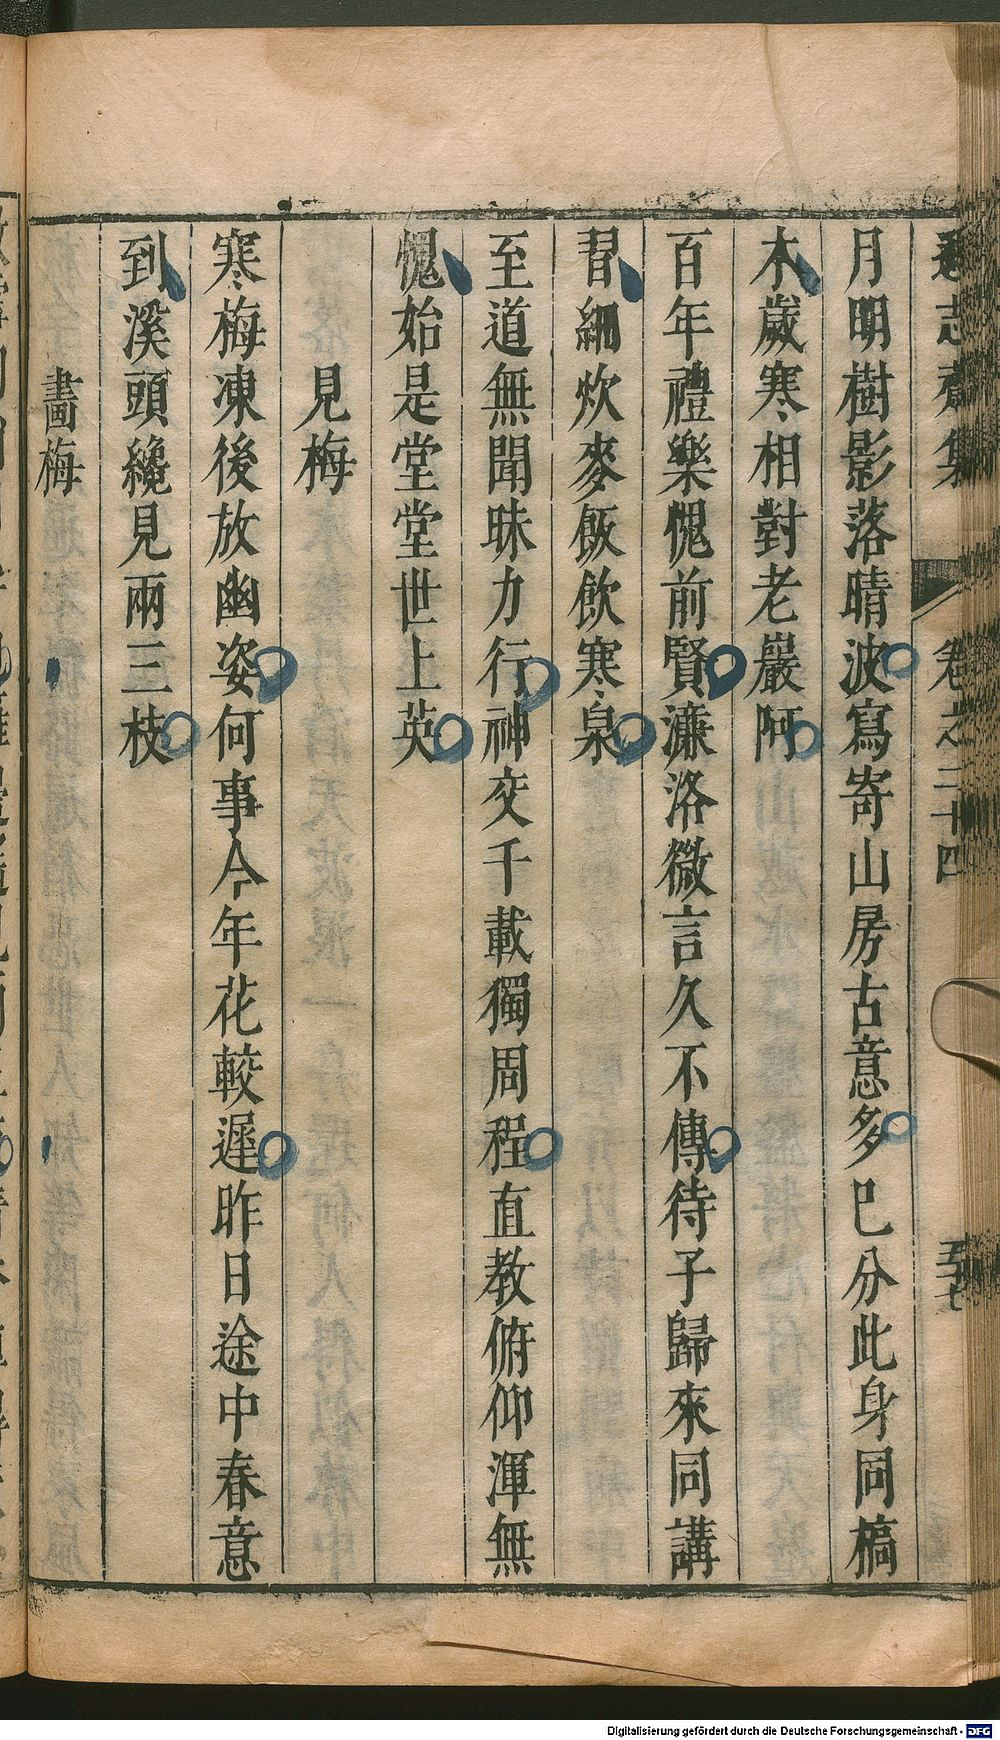 遜志齋集 卷之二十四 五七
月明樹影落晴波寫寄山房古意多巳分此身同槁
木歲寒相對老巖阿
百年禮樂愧前賢濂洛微言久不傳待子歸來同講
習細炊麥飯飲寒泉
至道無聞昧力行神交千載獨周程直教俯仰渾無
愧始是堂堂世上英
見梅
寒梅凍後放幽姿何事今年花較遲昨日途中春意
到溪頭纔見兩三枝
畫梅
Digitalisierung gefördert durch die Deutsche Forschungsgemeinschaft - DFG